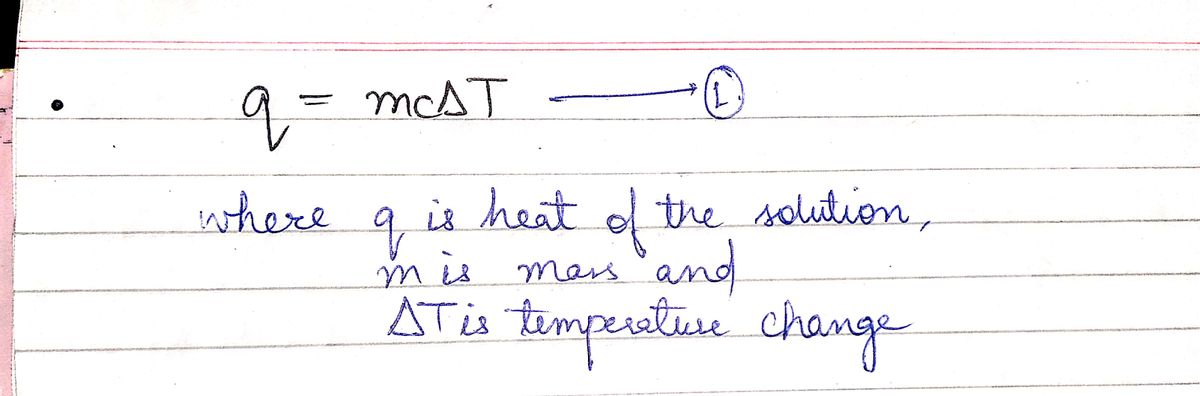 • q = mcΔT ⟶ ①
where q is heat of the solution,
m is mass and
ΔT is temperature change